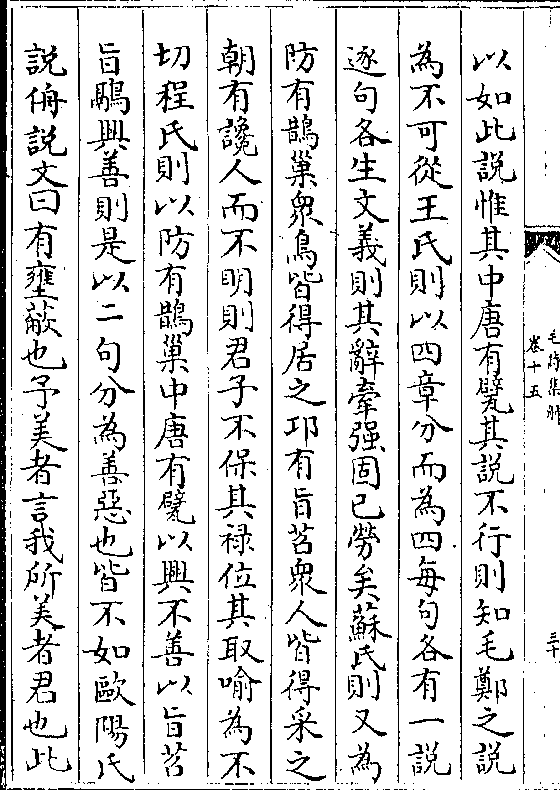 以如此說惟其中唐有甓其說不行則知毛鄭之說
為不可從王氏則以四章分而為四每句各有一說
逐句各生文義則其辭牽强固已勞矣蘇氏則又為
防有鵲巢衆鳥皆得居之邛有旨苕衆人皆得采之
朝有讒人而不明則君子不保其祿位其取喻為不
切程氏則以防有鵲巢中唐有甓以興不善以旨苕
旨鷊興善則是以二句分為善惡也皆不如歐陽氏
說侜說文曰有壅蔽也予美者言我所美者君也此
毛詩集解
卷十五
三十